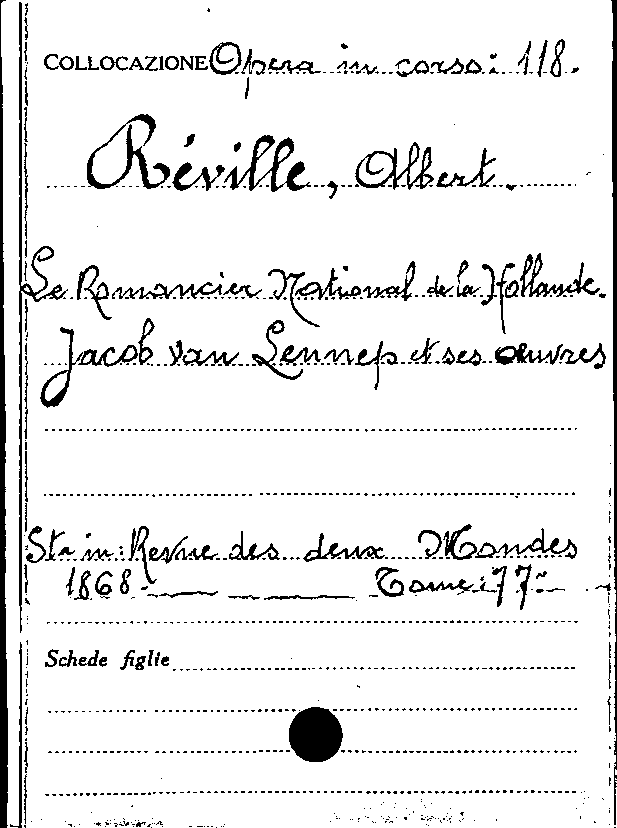 COLLOCAZIONE Opera in corso: 118.
Réville, Albert.
Le Romancier National de la Hollande.
Jacob van Lennep et ses œuvres
Sta in: Revue des deux Mondes
1868. Tome: 77º
Schede figlie